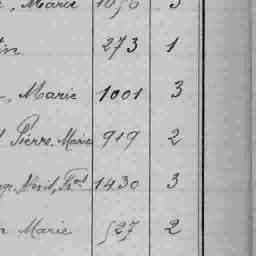 Marie 1090 3
in 273 1
Marie 1001 3
Pierre-Marie 919 2
1430 3
Marie 527 2